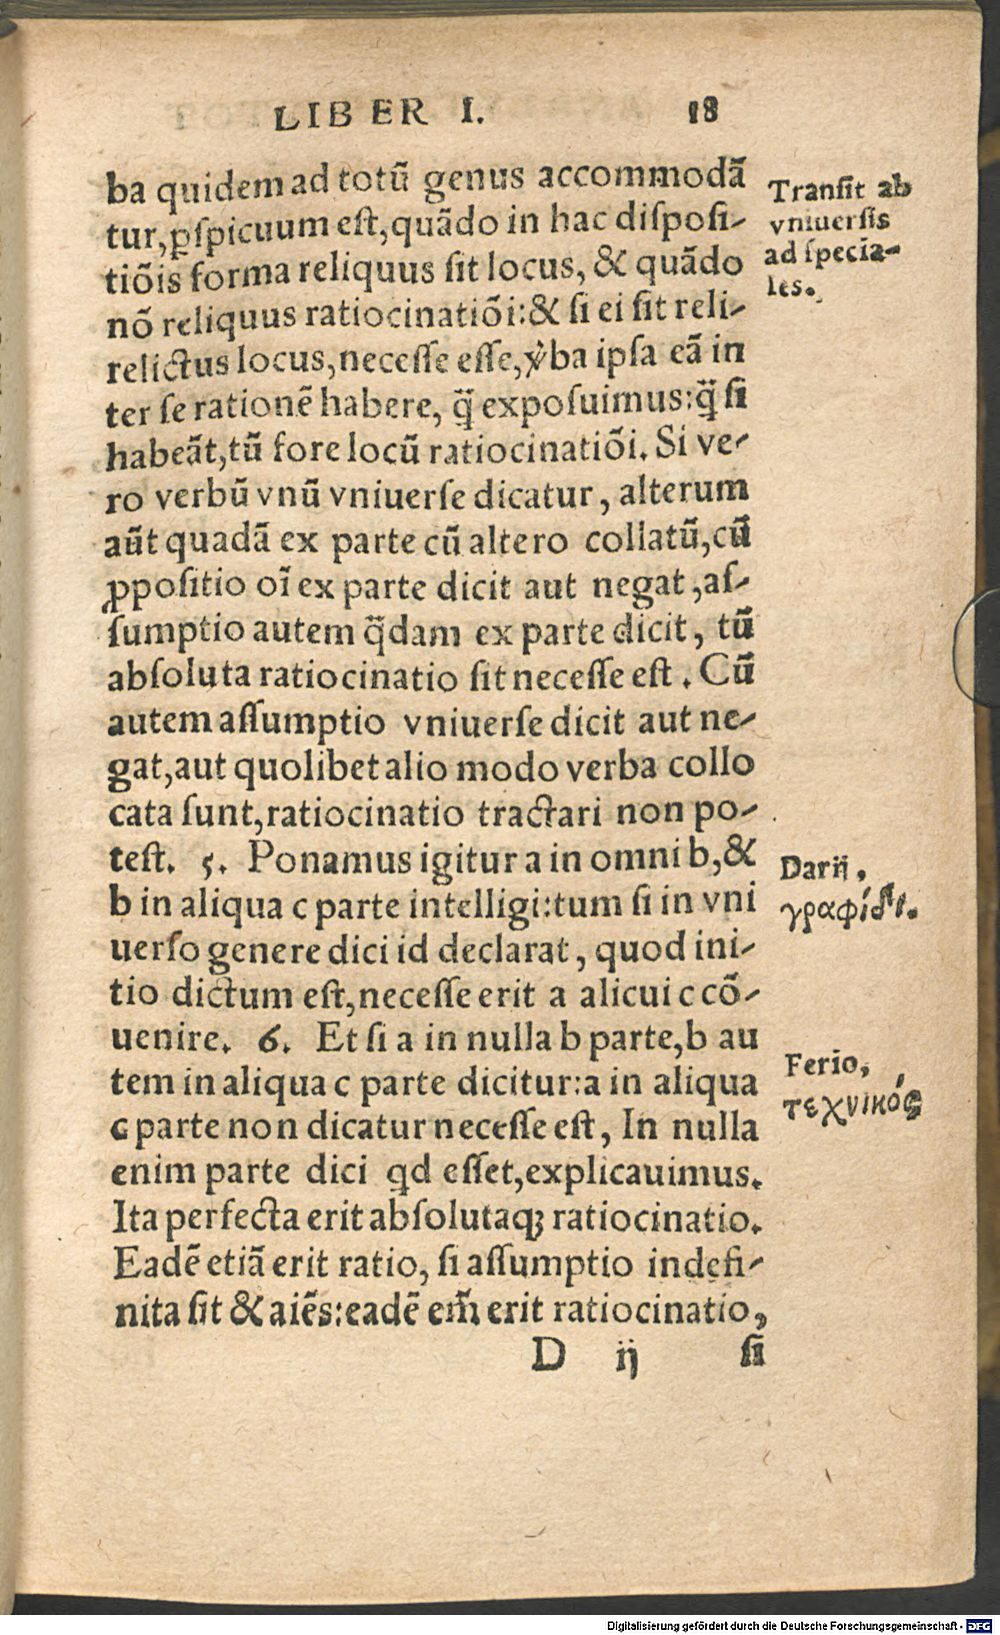 LIBER I. 18
ba quidem ad totũ genus accommodã
tur, ꝑspicuum est, quãdo in hac disposi-
tiõis forma reliquus sit locus, & quãdo
nõ reliquus ratiocinatiõi: & si ei sit reli-
relictus locus, necesse esse, v̉ba ipsa eã in
ter se rationẽ habere, q̃ exposuimus: q̃ si
habeãt, tũ fore locũ ratiocinatiõi. Si ve-
ro verbũ vnũ vniuerse dicatur, alterum
aũt quadã ex parte cũ altero collatũ, cũ
ꝓpositio oĩ ex parte dicit aut negat, as-
sumptio autem q̃dam ex parte dicit, tũ
absoluta ratiocinatio sit necesse est. Cũ
autem assumptio vniuerse dicit aut ne-
gat, aut quolibet alio modo verba collo
cata sunt, ratiocinatio tractari non po-
test. 5. Ponamus igitur a in omni b, &
b in aliqua c parte intelligi: tum si in vni
uerso genere dici id declarat, quod ini-
tio dictum est, necesse erit a alicui c cõ-
uenire. 6. Et si a in nulla b parte, b au
tem in aliqua c parte dicitur: a in aliqua
c parte non dicatur necesse est, In nulla
enim parte dici qd esset, explicauimus.
Ita perfecta erit absolutaq; ratiocinatio.
Eadẽ etiã erit ratio, si assumptio indefi-
nita sit & aiẽs: eadẽ em̃ erit ratiocinatio,
D ij si
Transit ab
vniuersis
ad specia-
les.
Darij,
γραφίδι.
Ferio,
τεχνικός
Digitalisierung gefördert durch die Deutsche Forschungsgemeinschaft - DFG